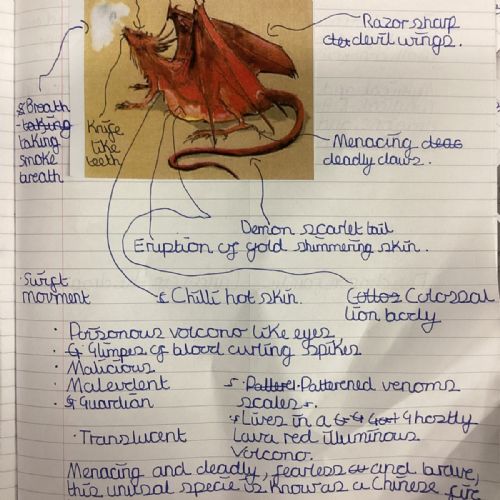 Razor sharp
devil wings.
Breath
taking
taking
smoke
breath
Knife
like
teeth
Menacing
deadly claws.
Demon scarlet tail
Eruption of gold shimmering skin.
Swift
movment
Chilli hot skin.
Colossal
lion body
· Poisonous volcono like eyes
· Glimpes of blood curling spikes
· Malicious
· Malevelent
· Guardian
· Patterned venoms
scales.
Lives in a Ghostly
Lava red illuminous
volcono.
· Translucent
Menacing and deadly, fearless and brave,
this unusal specie is known as a Chinese fire